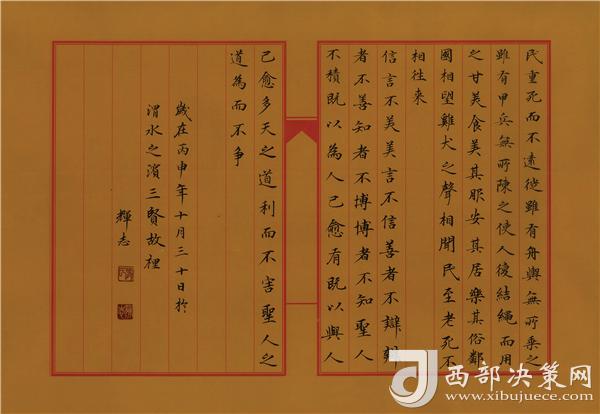 民重死而不遠徙雖有舟輿無所乘之
雖有甲兵無所陳之使人復結繩而用
之甘美食美其服安其居樂其俗鄰
國相望雞犬之聲相聞民至老死不
相往来
信言不美美言不信善者不辯辯
者不善知者不博博者不知聖人
不積既以為人己愈有既以與人
己愈多天之道利而不害聖人之
道為而不争
歲在丙申年十月三十日於
渭水之濱三賢故裡
輝志
西部决策网
www.xibujuece.com